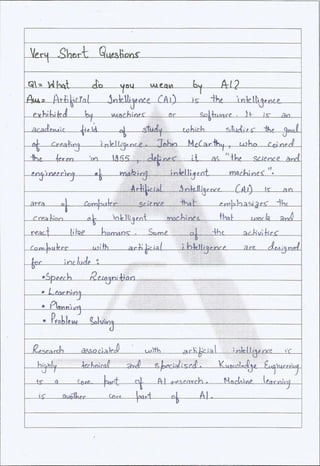 Very Short Questions
Q1= What do you mean by AI?
Ans= Artificial Intelligence (AI) is the intelligence
exhibited by machines or software. It is an
academic field of study which studies the goal
of creating intelligence. John McCarthy, who coined
the term in 1955, defines it as "the science and
engineering of making intelligent machines".
Artificial Intelligence (AI) is an
area of computer science that emphasizes the
creation of intelligent machines that work and
react like humans. Some of the activities
computer with artificial intelligence are designed
for include :
•Speech Recognition
• Learning
• Planning
• Problem Solving
Research associated with artificial intelligence is
highly technical and specialised. Knowledge Engineering
is a core part of AI research. Machine learning
is another core part of AI.